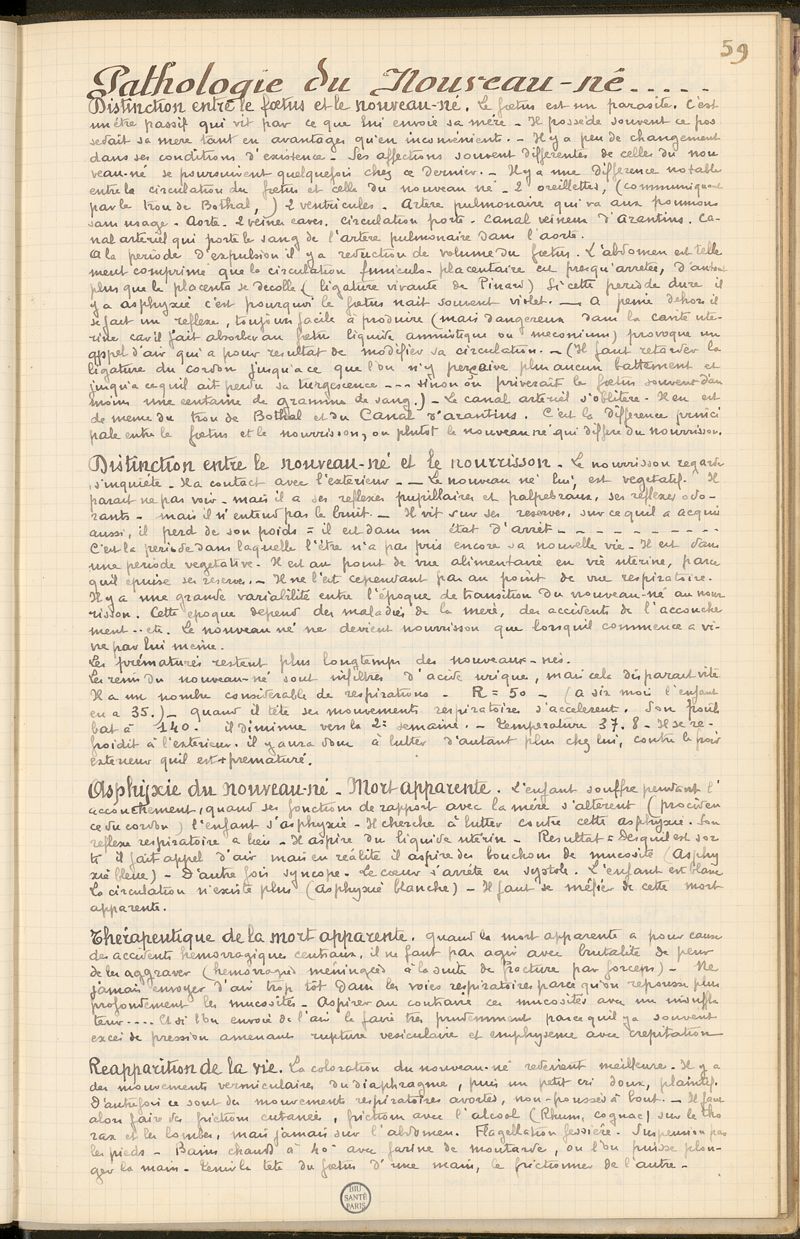 59
Pathologie du Nouveau-né.....
Distinction entre le fœtus et le nouveau-né. Le fœtus est un parasite. C'est
un être passif qui vit par ce que lui envoie sa mère - Il possède souvent ce pos
sédait sa mère tant en avantages qu'en inconvénients. - Il y a peu de changement
dans ses conditions d'existence - Ses affections souvent différentes de celles du nou
veau-né se poursuivent quelquefois chez ce dernier. - Il y a une différence notable
entre la circulation du fœtus et celle du nouveau né - 2 oreillettes, (communiquant
par le trou de Bothal,) 2 ventricules - Artère pulmonaire qui va aux poumons
sans usage - Aorte - 2 veines caves. Circulation porte - Canal veineux d'Arantius. Ca-
nal artériel qui porte le sang de l'artère pulmonaire dans l'aorte.
A la période d'expulsion il y a réduction de volume du fœtus. L'abdomen est telle
ment comprimé que la circulation funiculo-placentaire est presqu'arretée, d'autant
plus que le placenta se décolle (ligature vivante de Pinard) Si cette période dure il
y a asphyxie c'est pourquoi le fœtus nait souvent violet. - A peine dehors il
se fait un reflexe, toujours facile à produire (mais dangereux dans la cavité uté-
rine car il fait absorber au fœtus liquide amniotique ou meconium) provoque un
appel d'air qui a pour resultat de modifier sa circulation. - (Il faut retarder la
ligature du cordon jusqu'a ce que l'on n'y perçoive plus aucun battement et
jusqu'a ce qu'il ait perdu sa turgescence --- sinon on priverait le fœtus souvent d'au
moins une centaine de gramme de sang.) - Le canal artériel s'oblitère. Il en est
de meme du trou de Bothal et du Canal d'arantius. C'est la difference princi
pale entre le fœtus et le nourrisson, ou plutot le nouveau né qui differe du nourrisson.
Distinction entre le nouveau-né et le nourrisson - Le nourrisson regarde
s'inquiète - Il a contact avec l'exterieur - Le nouveau né lui, est vegetatif. Il
parait ne pas voir - mais il a ses reflexes pupillaires et palpebraux, ses reflexes odo-
rants - mais il n'entend pas le bruit. - Il vit sur ses reserves, sur ce quil a acquis
aussi, il perd de son poids = il est dans un état d'arrêt - - - - - - - - -
C'est la periode dans laquelle l'être n'a pas pris encore sa nouvelle vie - Il est dans
une periode vegetative. Il est au point de vue alimentaire en vie uterine, parce
quil épuise ses reserve. - Il ne l'est cependant pas au point de vue respiratoire.
Il y a une grande variabilité entre l'époque de transition du nouveau-né au nour
risson. Cette époque depend des maladies de la mere, des accidents de l'accouche
ment - etc. Le nouveau né ne devient nourrisson que lorsquil commence a vi-
vre par lui meme.
Les prématurés restent plus longtemps des nouveaux-nés.
Les reins du nouveau-né sont infiltrés d'acide urique, mais cela disparait vite
Il a un nombre considerable de respirations - R = 50 - (a six mois l'enfant
en a 35.) - quand il tête ses mouvements respiratoire s'accelerent. Son pouls
bat à 140. il diminue vers la 2e semaine. - Température 37.8 - Il se re-
froidit à l'exterieur. il y aura donc à lutter d'autant plus chez lui, contre le froid
exterieur quil est + premature.
Asphyxie du nouveau-né - Mort apparente. L'enfant souffre pendant l'
accouchement, quand ses fonctions de rapport avec la mère s'altèrent (prociden
ce du cordon) l'enfant s'asphyxie - Il cherche à lutter contre cette asphyxie. Son
reflexe respiratoire a lieu - Il aspire du liquide utérin - Resultat = Des quil est sor
ti il fait appel d'air mais en réalité il aspire des bouchons de mucosité (Asphy
xie bleue) - D'autre fois syncope. Le cœur s'arrête en systole. L'enfant est blanc
La circulation n'existe plus (Asphyxie blanche) - Il faut se méfier de cette mort
apparente.
Thérapeutique de la mort apparente. Quand la mort apparente a pour cause
des accidents hemorragique centraux, il ne faut pas agir avec brutalité de peur
de les aggraver (hemorragies méningées à la suite de fracture par forceps) - Ne
jamais envoyer d'air trop tôt dans les voies respiratoires parce qu'on repousse plus
profondement les mucosités - Aspirer au contraire ces mucosités avec un insuffla
teur.... Et si l'on envoie de l'air le faire tres prudemment parce quil y a souvent
exces de pression amenant rupture vesiculaire et emphyseme avec crepitation
Reapparition de la vie. La coloration du nouveau-né redevient meilleure. Il y a
des mouvements vermiculaires du diaphragme, puis un petit cri doux, plaintif.
D'autrefois ce sont des mouvements respiratoires avortés, non-poussés à bout. - Il faut
alors faire des friction cutanée, friction avec l'alcool (Rhum, cognac) sur le tho
rax et les lombes, mais jamais sur l'abdomen. Flagellation fessière. Suspension par
les pieds - Bains chauds à 40° avec farine de moutarde, ou l'on puisse plon-
ger la main. Tenir la tete du fœtus d'une main, le frictionner de l'autre -
BIU
SANTÉ
PARIS